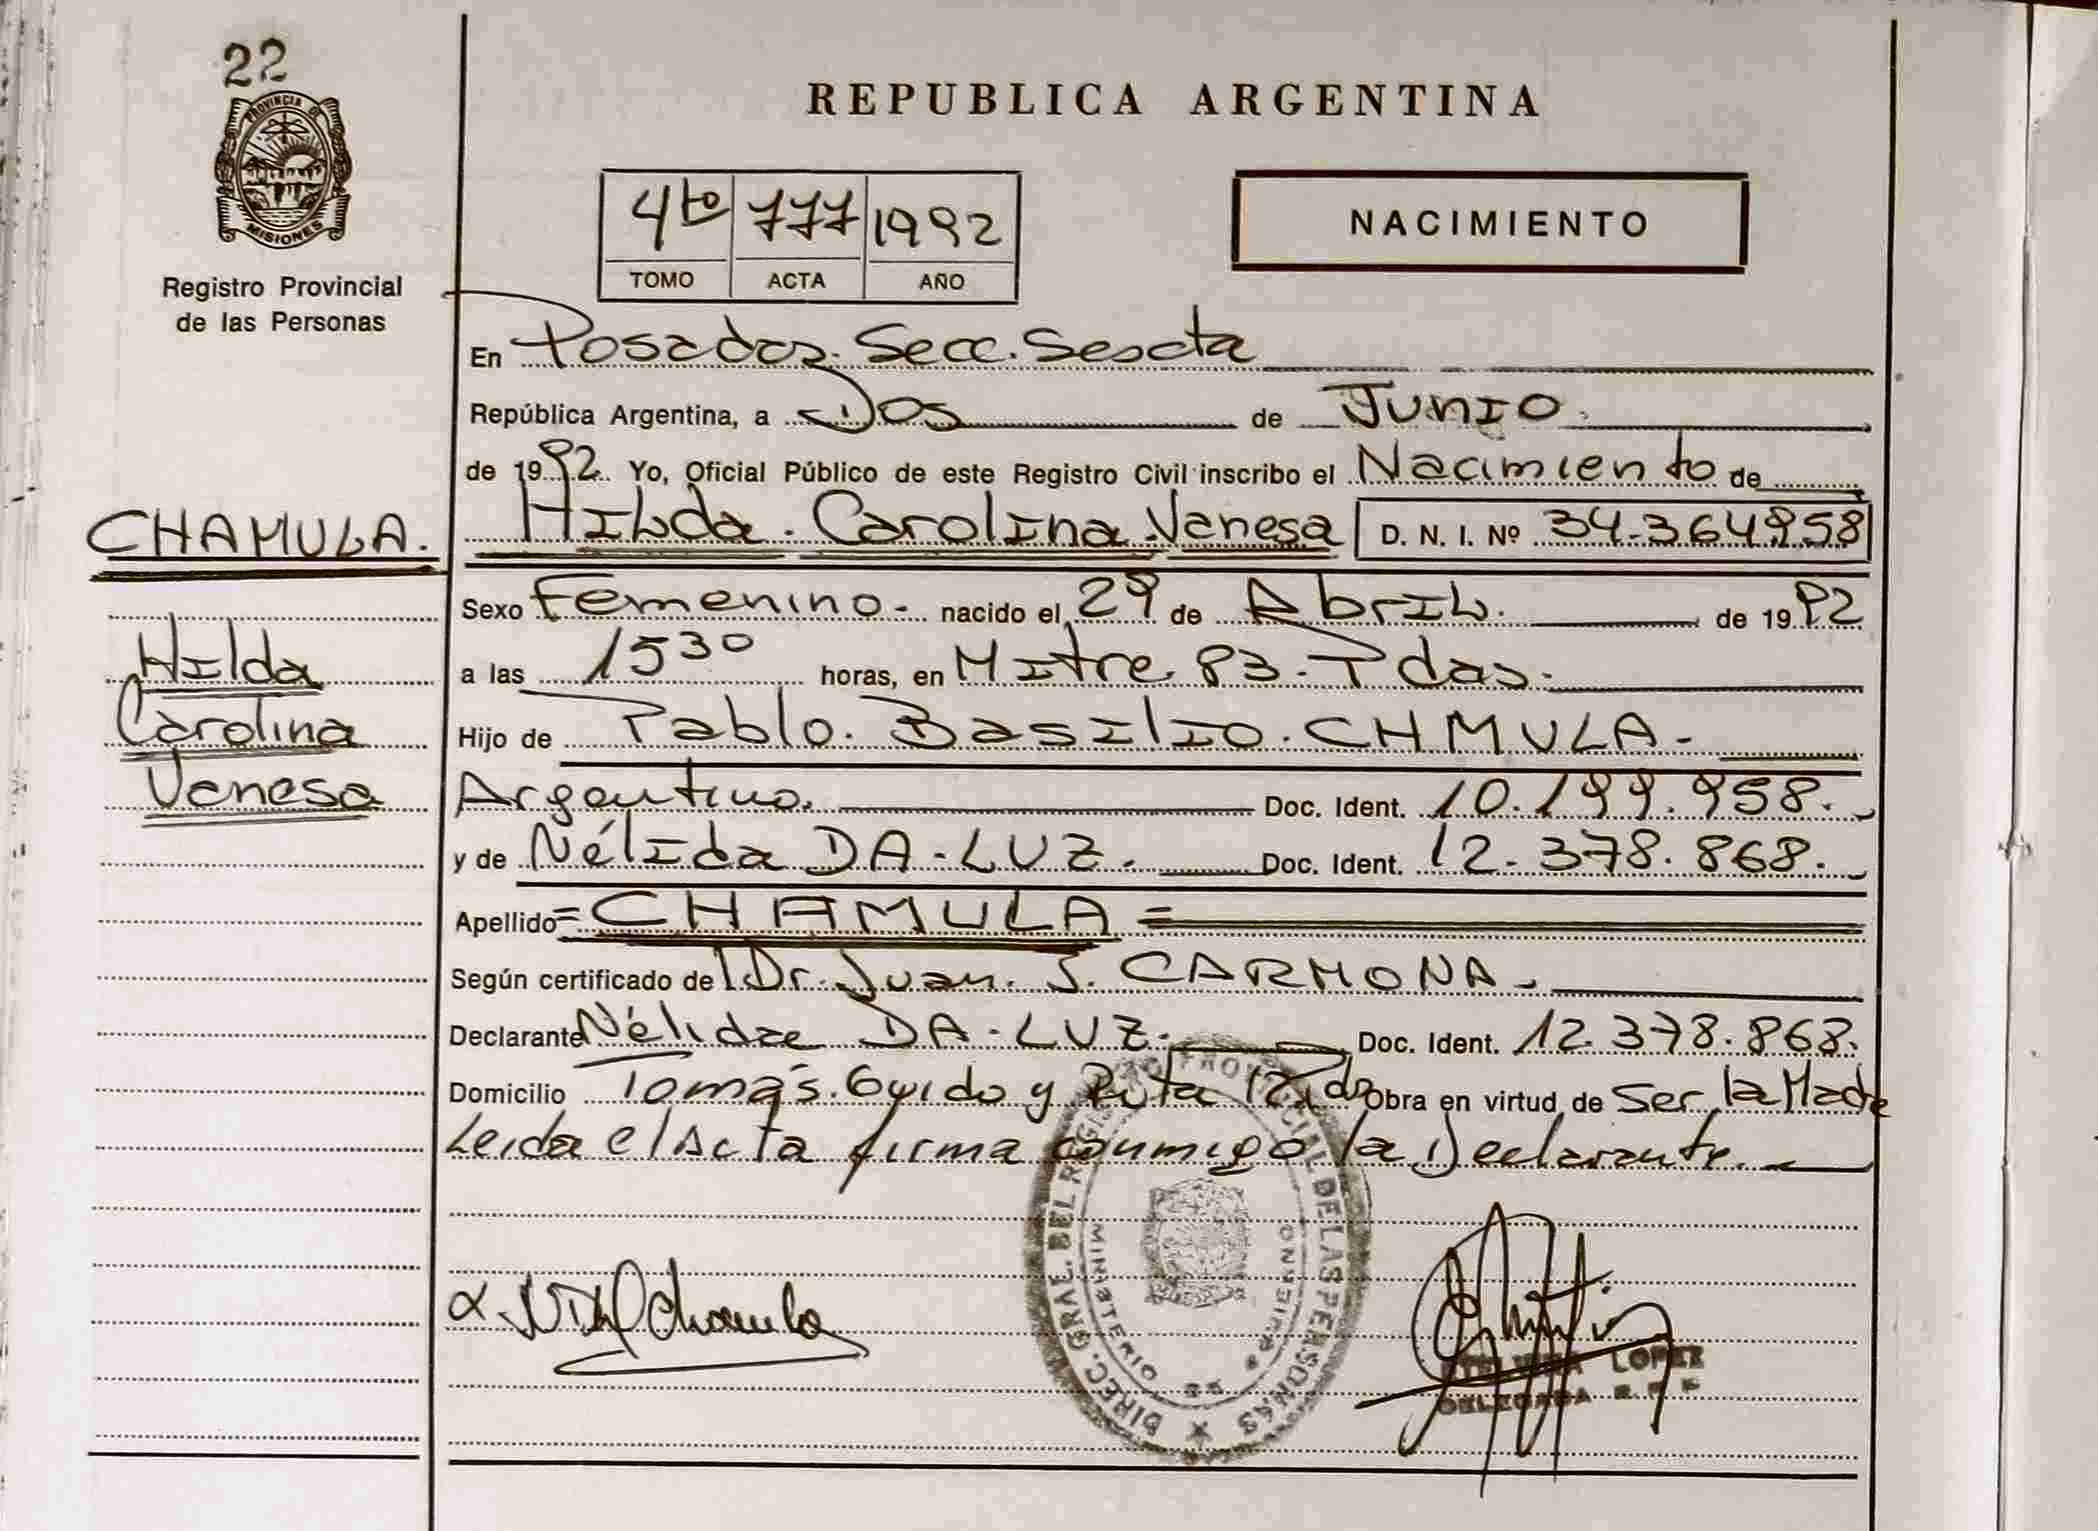 22
PROVINCIA D
MISIONES
Registro Provincial
de las Personas
REPUBLICA ARGENTINA
4to 777 1992
TOMO ACTA AÑO
NACIMIENTO
En Posadas. Secc. Sescta
República Argentina, a Dos de Junio.
de 1992. Yo, Oficial Público de este Registro Civil inscribo el Nacimiento de
CHAMULA.
Hilda. Carolina Vanesa D. N. I. Nº 34.364.958
Sexo Femenino.- nacido el 29 de Abril. de 1992
Hilda
a las 15 30 horas, en Mitre 83.- Pdas.
Carolina
Hijo de Pablo. Basilio. CHMULA.-
Vanesa
Argentino. Doc. Ident. 10.199.958.-
y de Nélida DA-LUZ.- Doc. Ident. 12.378.868.-
Apellido = CHAMULA =
Según certificado de Dr. Juan. J. CARMONA.-
Declarante Nélida DA-LUZ.- Doc. Ident. 12.378.868.
Domicilio Tomás. Guido y Ruta 12 Pdas Obra en virtud de Ser la Madre
Leida el Acta firma conmigo la Declarante.-
DIREC. GRAL. DEL REGISTRO PROVINCIAL DE LAS PERSONAS
MINISTERIO DE GOBIERNO
Chamula
LOPEZ
DELEGADA